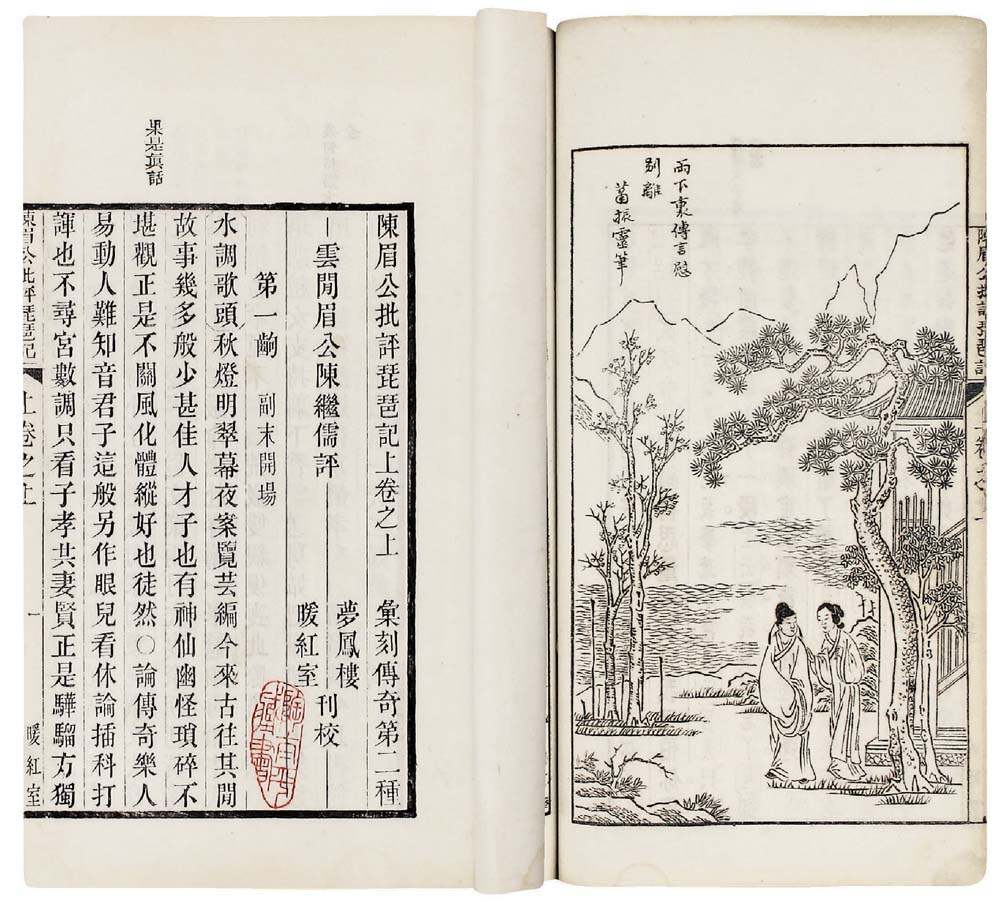 兩下裏傳言慰
別離
蕭振靈筆
陳眉公批評琵琶記
果是真話
陳眉公批評琵琶記上卷之上
彙刻傳奇第二種
一雲閒眉公陳繼儒評
夢鳳樓
暖紅室
刊校
第一齣
副末開場
水調歌頭秋燈明翠幕夜案覽芸編今來古往其閒
故事幾多般少甚佳人才子也有神仙幽怪瑣碎不
堪觀正是不關風化體縱好也徒然〇論傳奇樂人
易動人難知音君子這般另作眼兒看休論插科打
諢也不尋宮數調只看子孝共妻賢正是驊騮方獨
陳眉公批評琵琶記
上卷之上
一
暖紅室